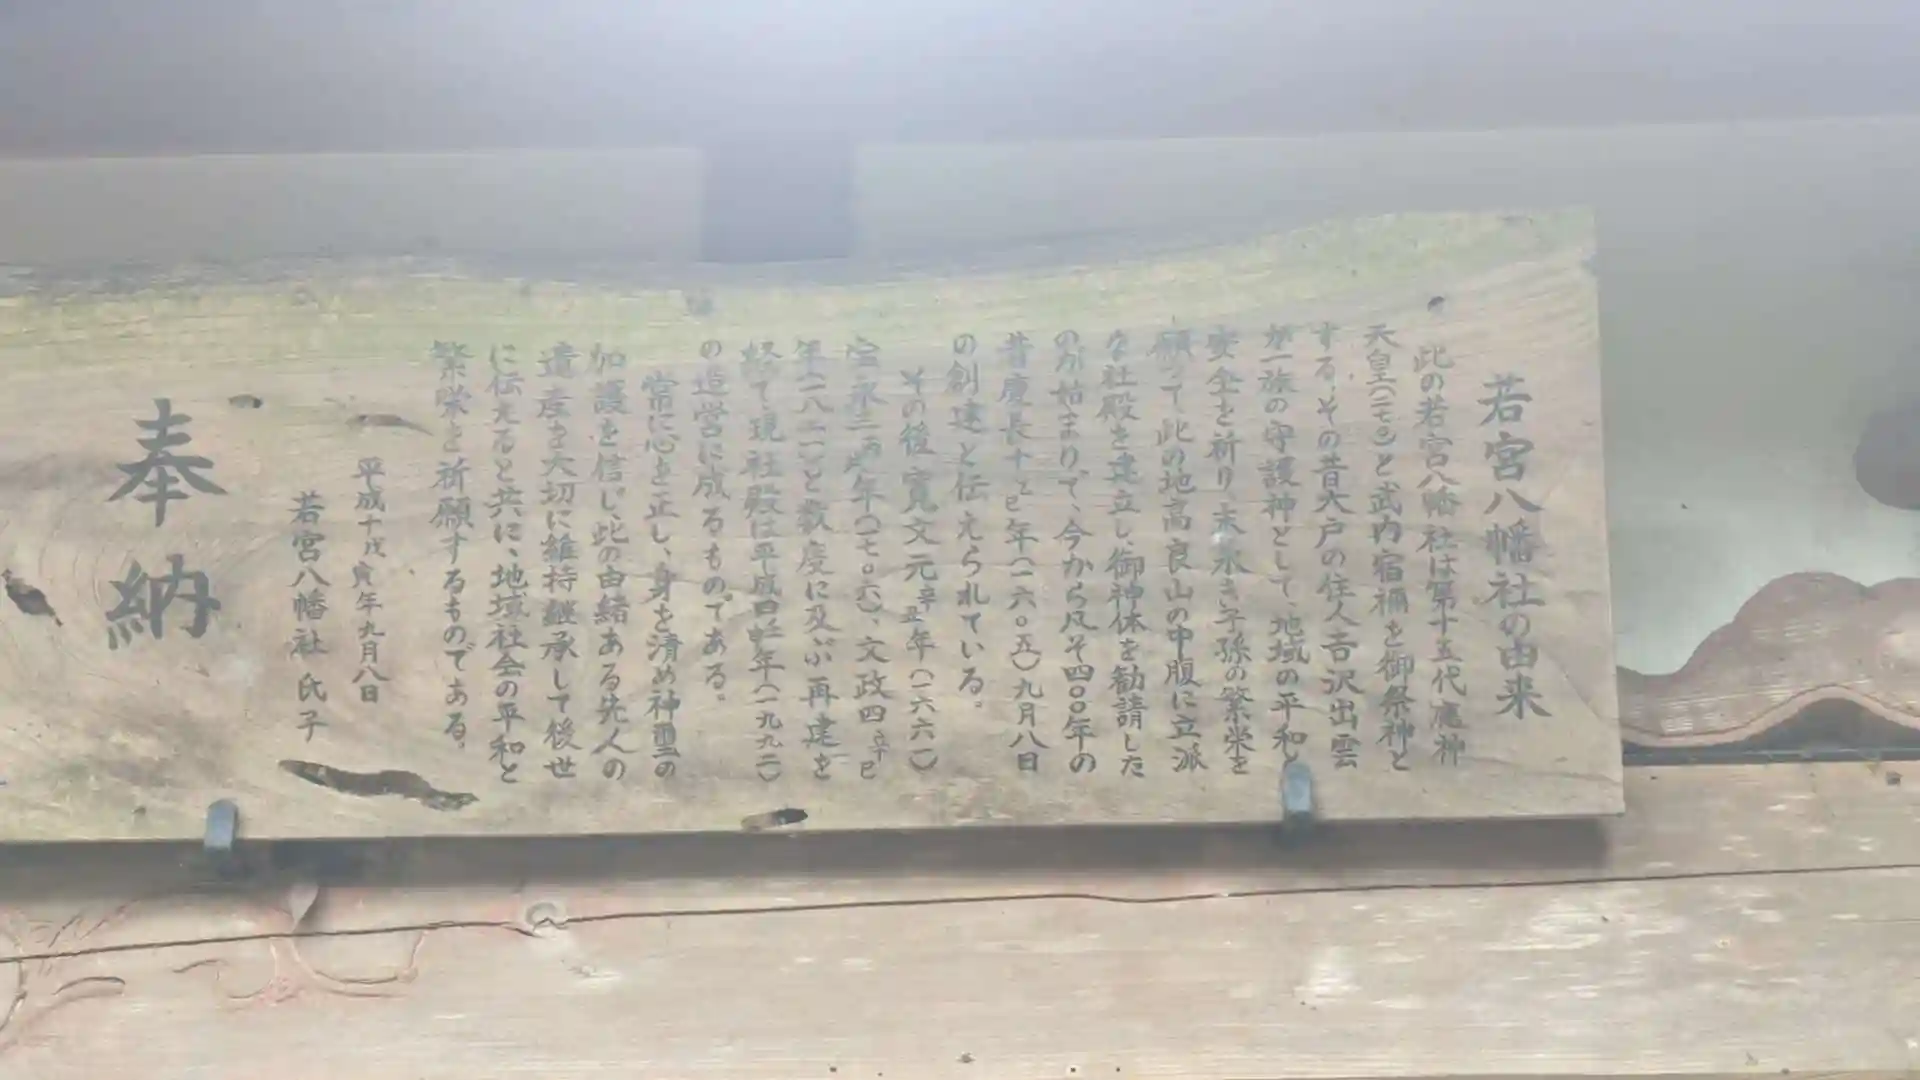 若宮八幡社の由来
此の若宮八幡社は第十五代應神
天皇(二七〇)と武内宿禰を御祭神と
する。その昔大戸の住人吉沢出雲
が一族の守護神として、地域の平和と
安全を祈り、末永き子孫の繁栄を
願って、此の地高良山の中腹に立派
な社殿を建立し、御神体を勧請した
のが始まりで、今から凡そ四〇〇年の
昔慶長十乙巳年(一六〇五)九月八日
の創建と伝えられている。
その後寛文元辛丑年(一六六一)
宝永三丙戌年(一七〇六)、文政四辛巳
年(一八二一)と数度に及ぶ再建を
経て、現社殿は平成四年(一九九二)
の造営に成るものである。
常に心を正し、身を清め神霊の
加護を信じ、此の由緒ある先人の
遺産を大切に維持継承して後世
に伝えると共に、地域社会の平和と
繁栄を祈願するものである。
平成十戊寅年九月八日
若宮八幡社 氏子
奉納